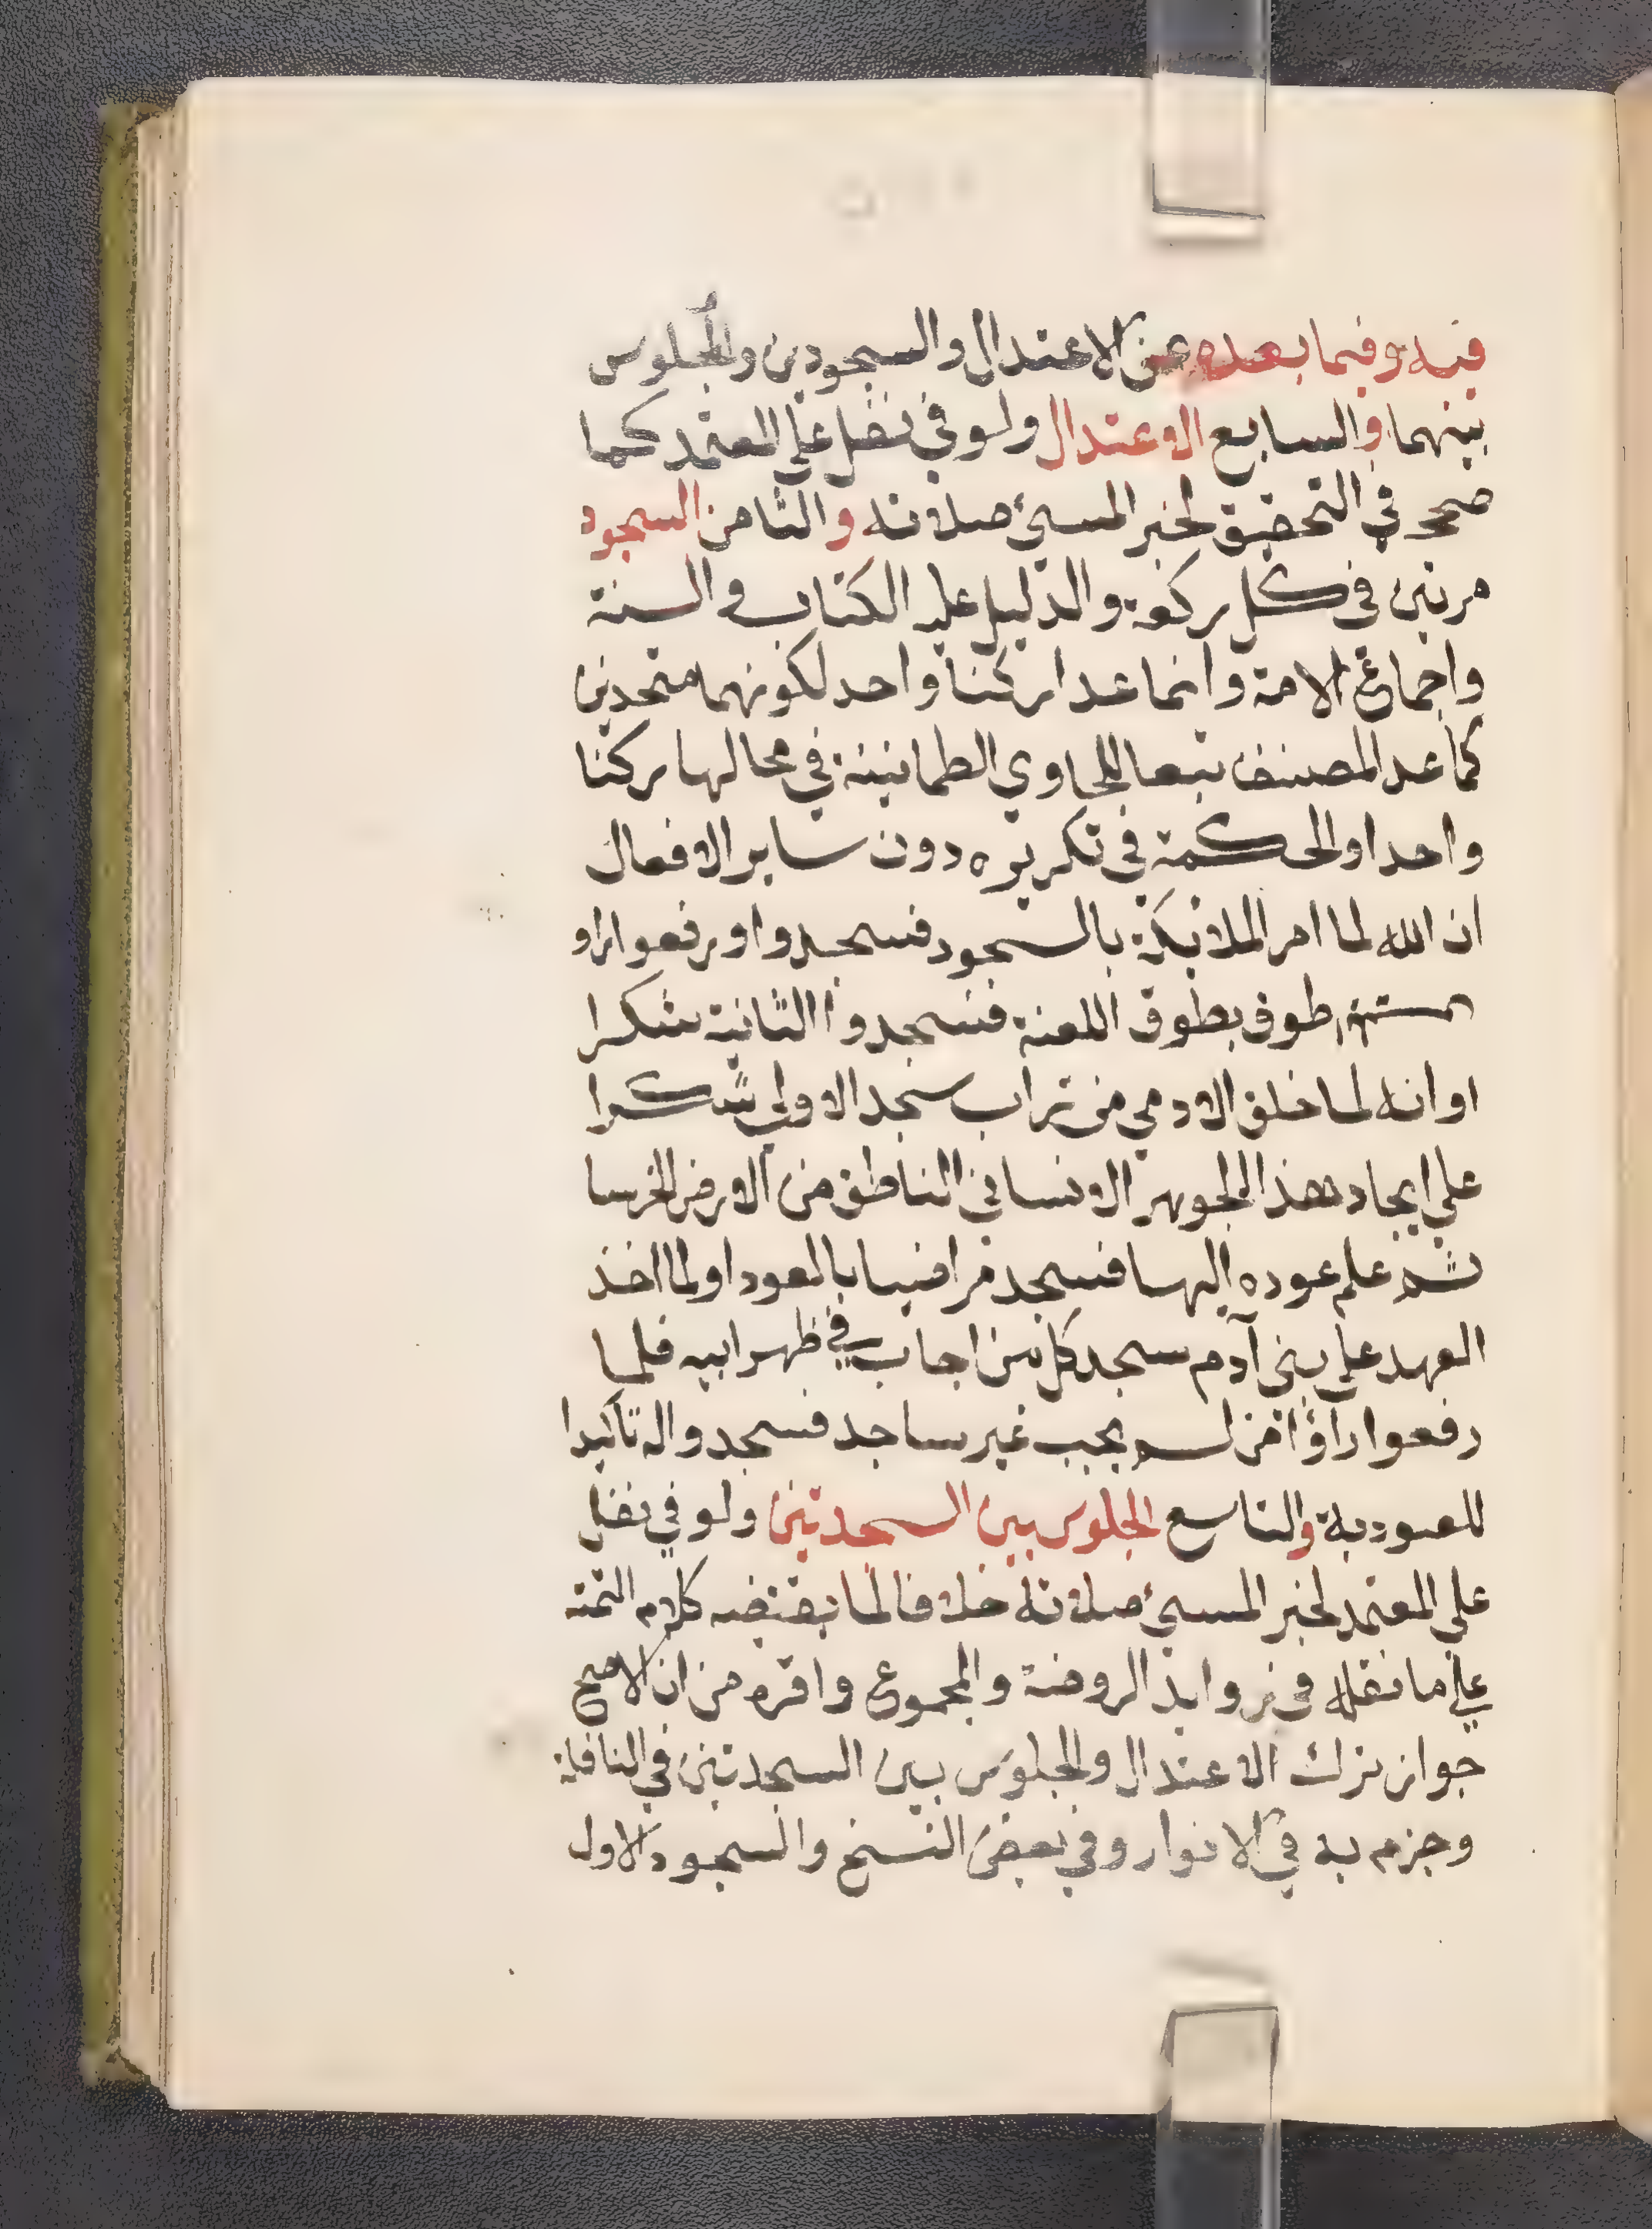 فيه وفيما بعده عن الاعتدال والسجودين والجلوس
بينهما والسابع الاعتدال ولو في نفل علي المعتمد كما
صححه في التحقيق لخبر المسئ صلاته والثامن السجود
مرتين في كل ركعة والدليل عليه الكتاب والسنة
واجماع الامة وانما عدا ركنا واحد لكونهما متحدين
كما عد المصنف تبعا للحاوي الطمانينة في محالها ركنا
واحدا والحكمة في تكريره دون ساير الافعال
ان الله لما امر الملائكة بالسجود فسجدوا ورفعوا راو
طوق بطوق اللعنة فسجدوا الثانية شكرا
او انه لما خلق الادمي من تراب سجد الاولي شكرا
علي ايجاد هذا الجوهر الانساني الناطق من الارض الخرسا
ثم علم عوده اليها فسجد مراضيا بالعود او لما اخذ
العهد علي بني آدم سجد كل من اجاب في ظهر ابيه فلما
رفعوا راؤا من لم يجب غير ساجد فسجدوا له تاكيدا
للعبودية والتاسع الجلوس بين السجدتين ولو في نفل
علي المعتمد لخبر المسئ صلاته خلافا لما يقتضيه كلام التتمة
علي ما نقله في زوايد الروضة والمجموع واقره من ان الاصح
جواز ترك الاعتدال والجلوس بين السجدتين في النافلة
وجزم به في الانوار وفي بعض النسخ والسجود الاول